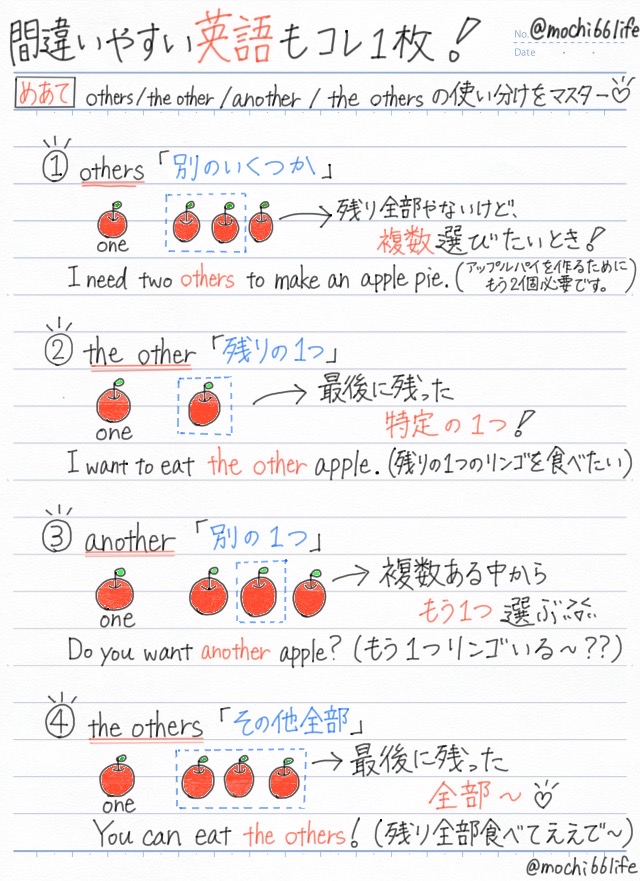 間違いやすい英語もコレ1枚!
No. @mochi66life
Date
めあて others/the other/another/the othersの使い分けをマスター♡
① others「別のいくつか」
one
残り全部やないけど、
複数選びたいとき!
I need two others to make an apple pie.(アップルパイを作るために
もう2個必要です。)
② the other「残りの1つ」
one
最後に残った
特定の1つ!
I want to eat the other apple.(残りの1つのリンゴを食べたい)
③ another「別の1つ」
one
複数ある中から
もう1つ選ぶ
Do you want another apple?(もう1つリンゴいる〜??)
④ the others「その他全部」
one
最後に残った
全部〜♡
You can eat the others!(残り全部食べてええで〜)
@mochi66life